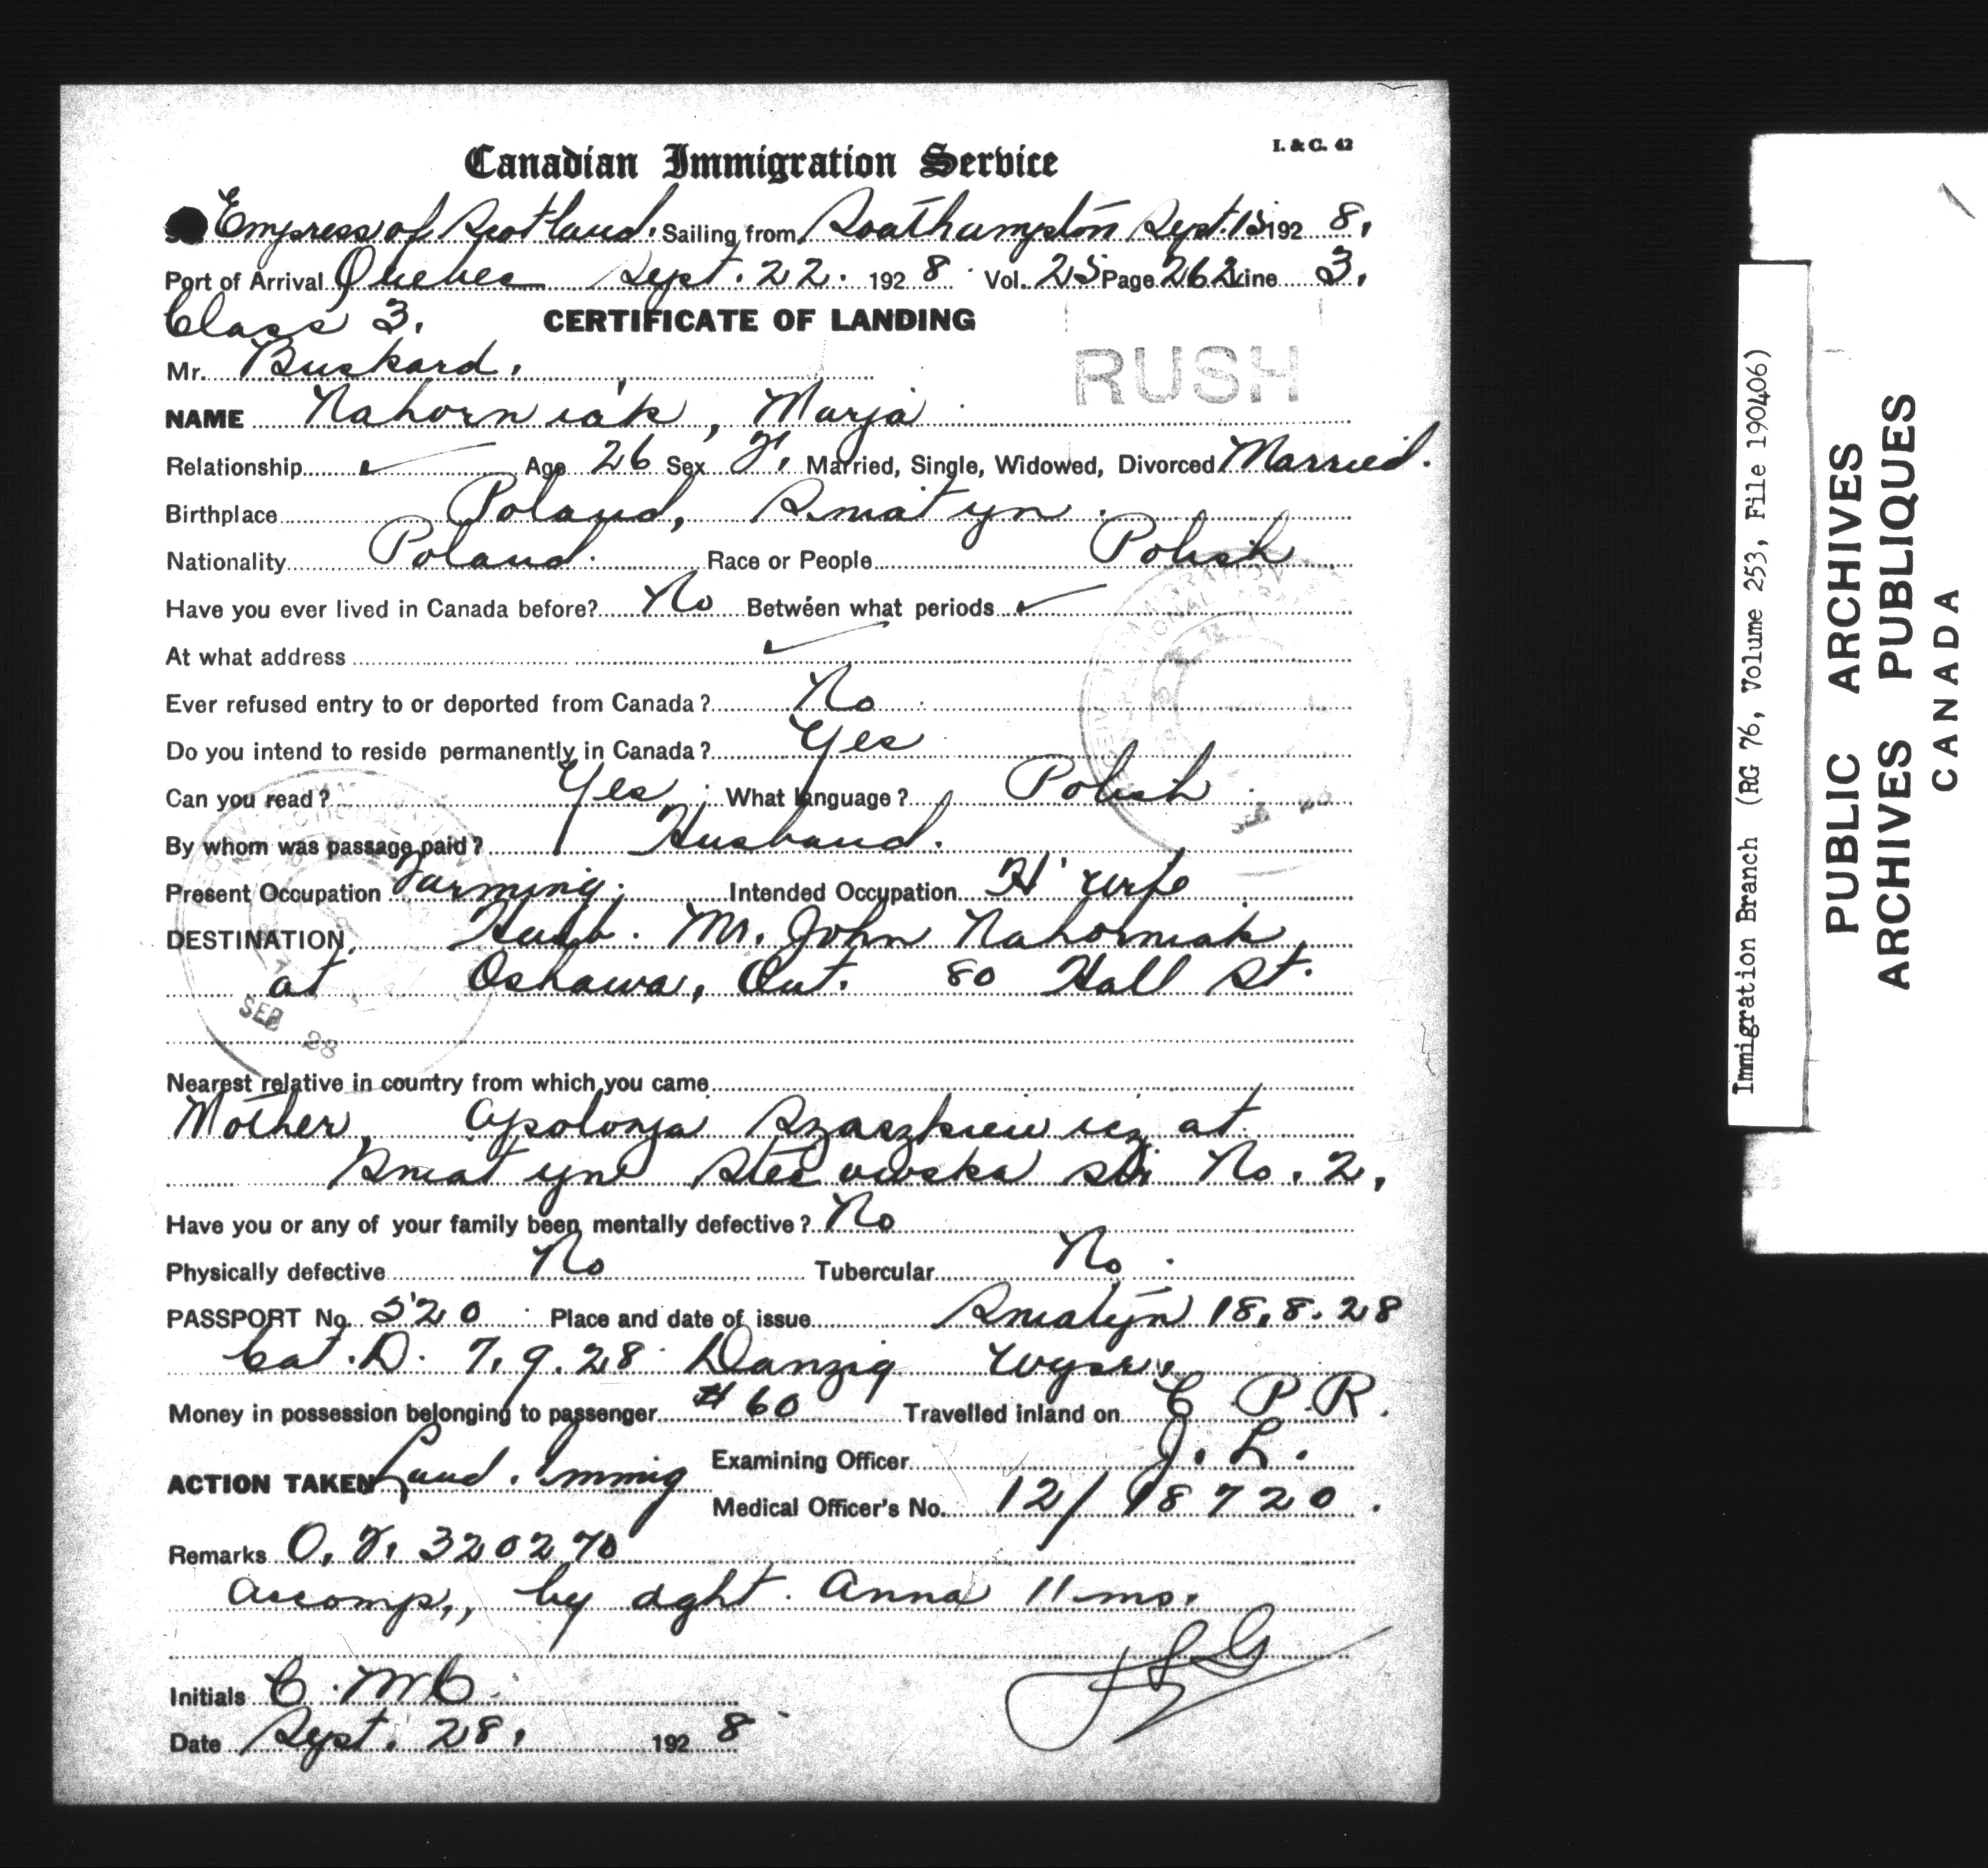 I. & C. 42
Canadian Immigration Service
Empress of Scotland. Sailing from Southampton Sept. 15 192 8,
Port of Arrival Quebec Sept. 22. 192 8 Vol. 25 Page 262 Line 3,
Class 3. CERTIFICATE OF LANDING
Mr. Buskard.
RUSH
NAME Nahorniak, Marja
Relationship Age 26 Sex F. Married, Single, Widowed, Divorced Married.
Birthplace Poland, Sniatyn.
Nationality Poland. Race or People Polish
Have you ever lived in Canada before? No Between what periods
At what address
Ever refused entry to or deported from Canada? No
Do you intend to reside permanently in Canada? Yes
Can you read? Yes What language? Polish
By whom was passage paid? Husband.
Present Occupation Farming. Intended Occupation H'wife
DESTINATION, Husb. Mr. John Nahorniak,
at Oshawa, Ont. 80 Hall St.
SEP 28
Nearest relative in country from which you came
Mother, Apolonja Szaszkiewicz at
Sniatyn No. 2,
Have you or any of your family been mentally defective? No
Physically defective No Tubercular No.
PASSPORT No. 320 Place and date of issue Sniatyn 18.8.28
Cat. D. 7.9.28 Danzig
Money in possession belonging to passenger $60 Travelled inland on C P R.
ACTION TAKEN Land. Immig Examining Officer J. L.
Medical Officer's No. 12/18720.
Remarks O. 320270
accomp., by dght. Anna 11 mo.
Initials C. McC
Date Sept. 28, 192 8
Immigration Branch (RG 76, Volume 253, File 190406)
PUBLIC ARCHIVES
ARCHIVES PUBLIQUES
CANADA